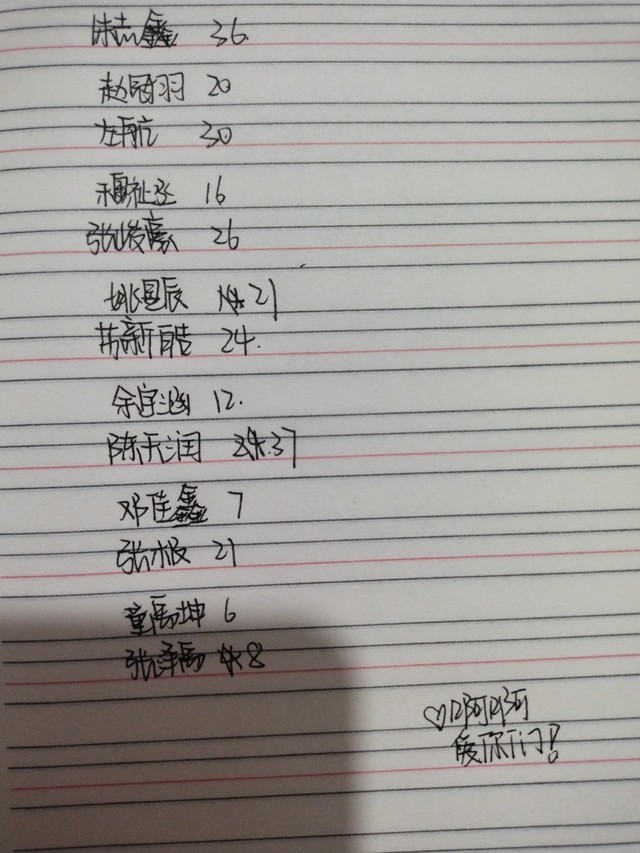 朱志鑫 36
赵冠羽 20
左航 30
穆祉丞 16
张峻豪 26
姚昱辰 21
苏新皓 24.
余宇涵 12.
陈天润 37
邓佳鑫 7
张极 21
童禹坤 6
张泽禹 8
♡啊啊
爱你们!